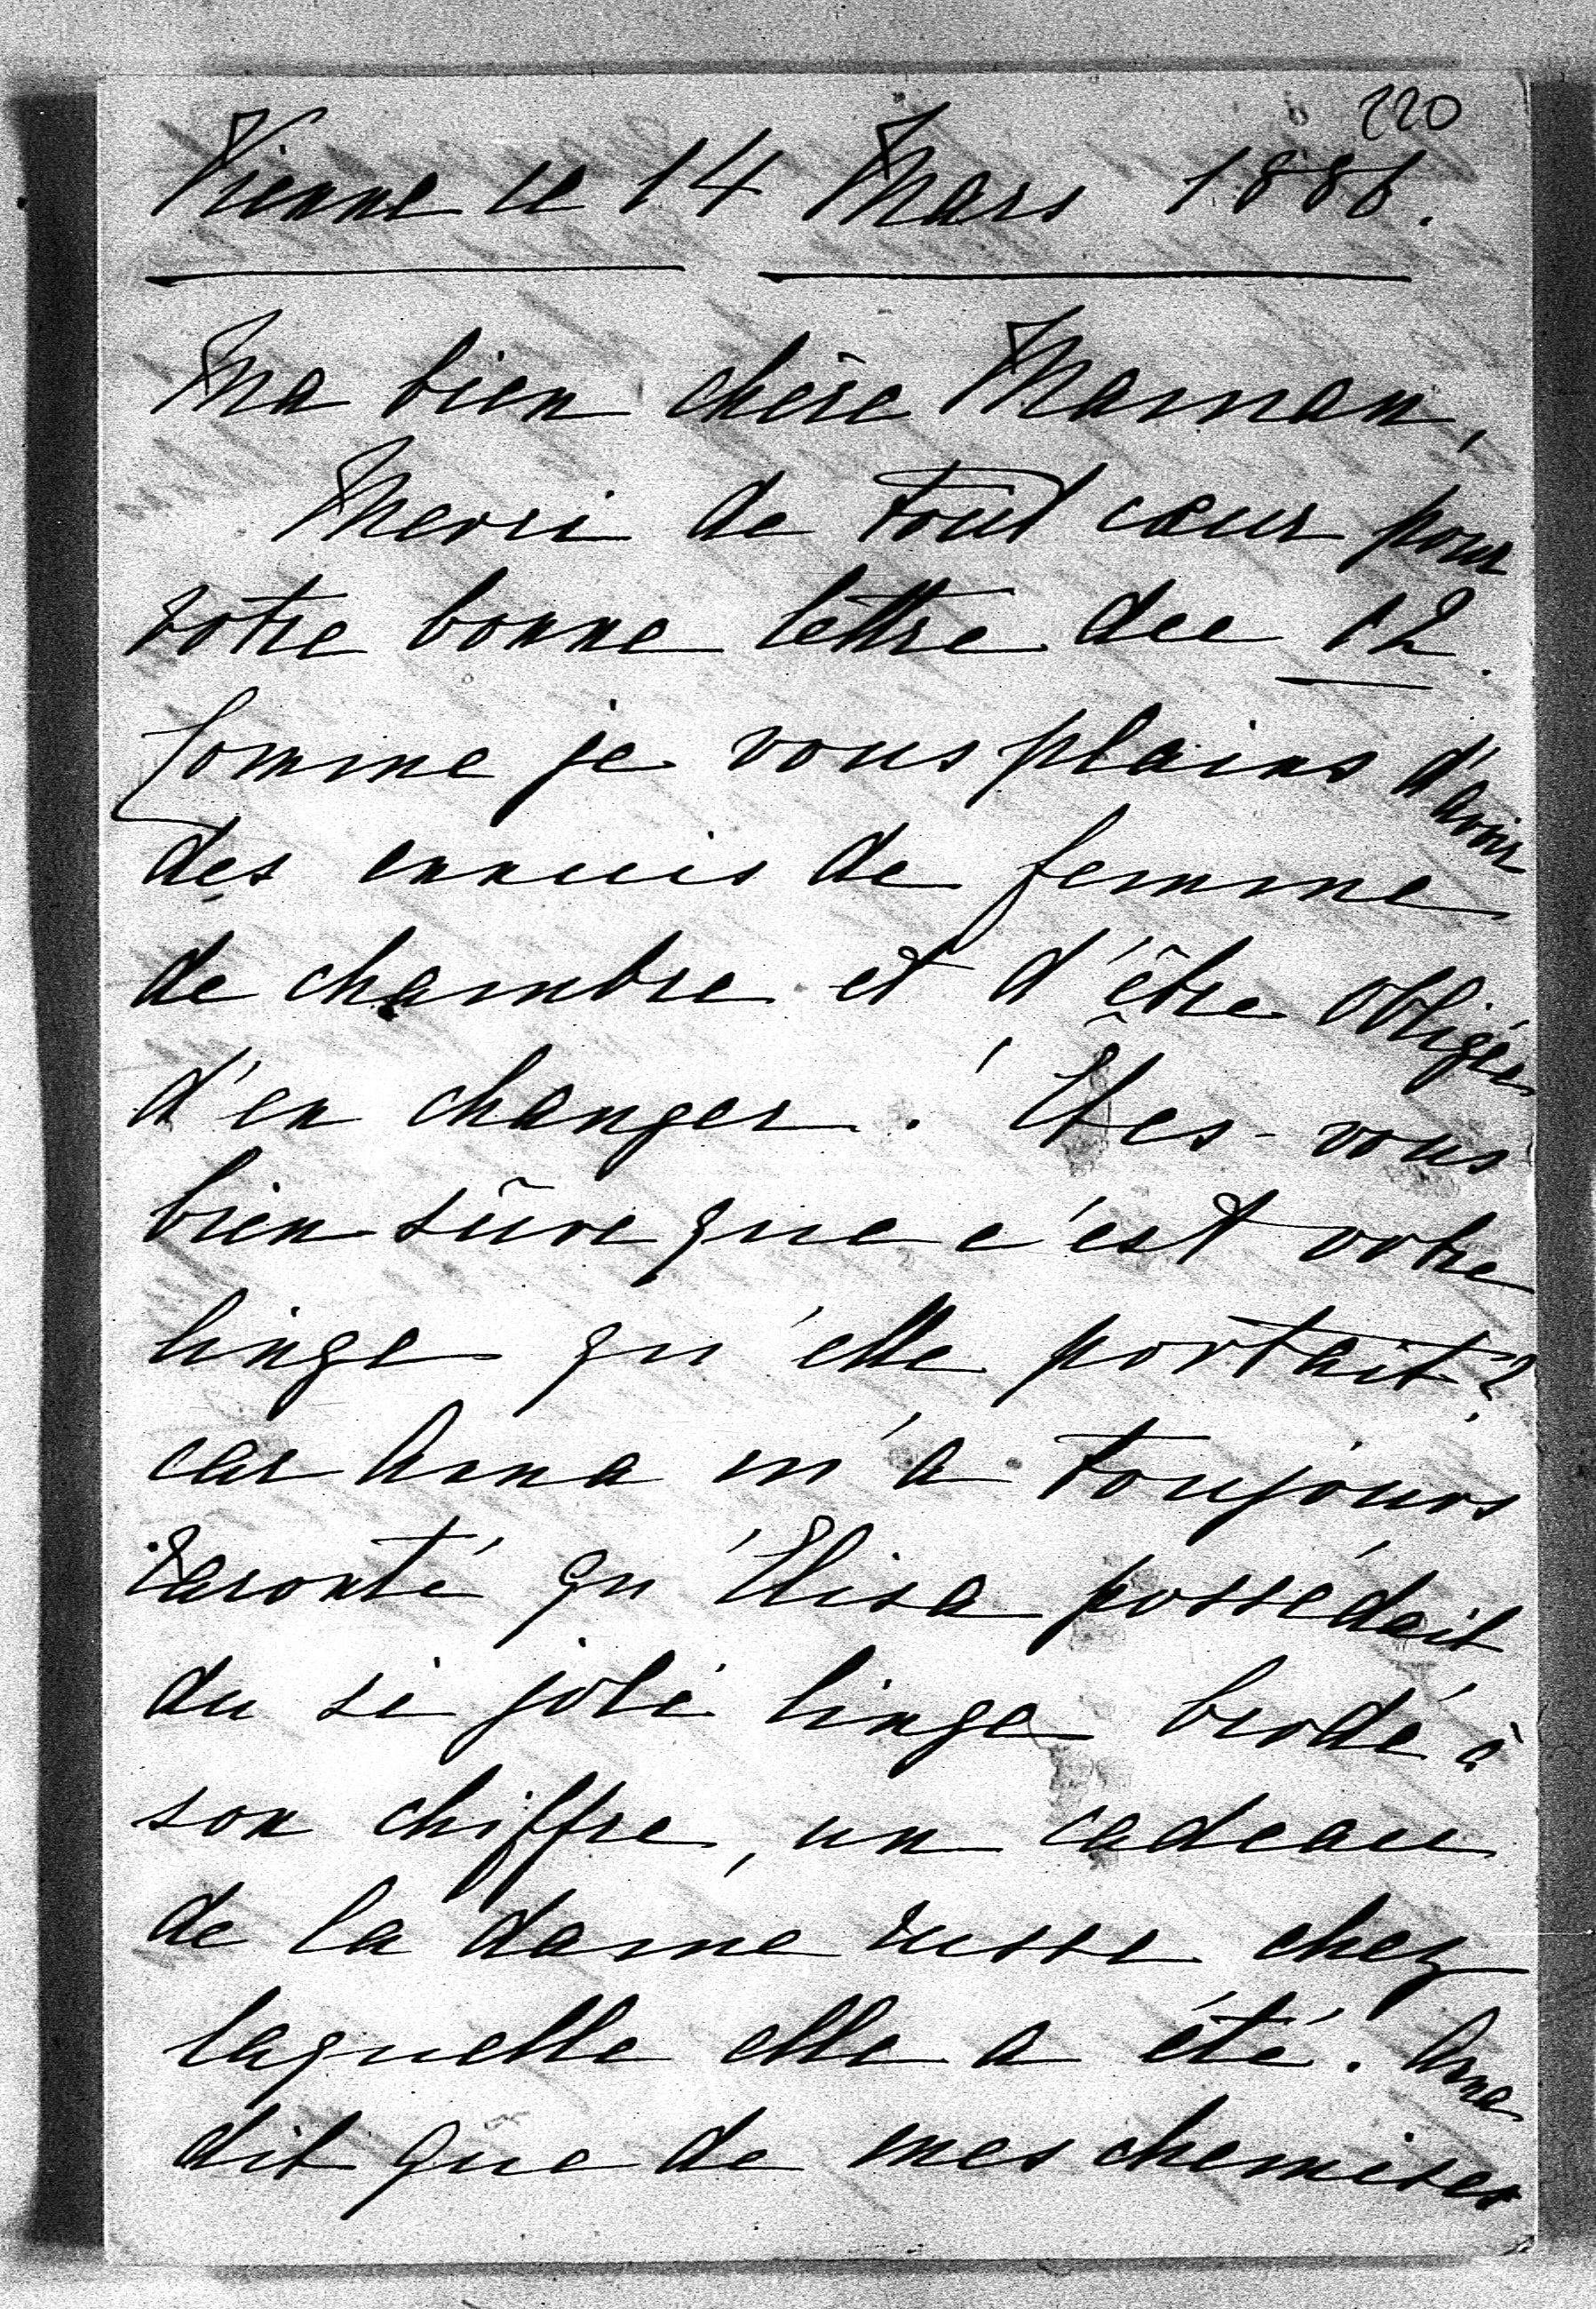 220
Vienne le 14 Mars 1886.
Ma bien chère Maman,
Merci de tout cœur pour
votre bonne lettre du 12.
Comme je vous plains d'avoir
des ennuis de femme
de chambre et d'être obligée
d'en changer. Êtes-vous
bien sûre que c'est votre
linge qu'elle portait?
car Anna m'a toujours
raconté qu'Elisa possédait
du si joli linge brodé à
son chiffre, un cadeau
de la dame russe chez
laquelle elle a été. Anna
dit que de mes chemises